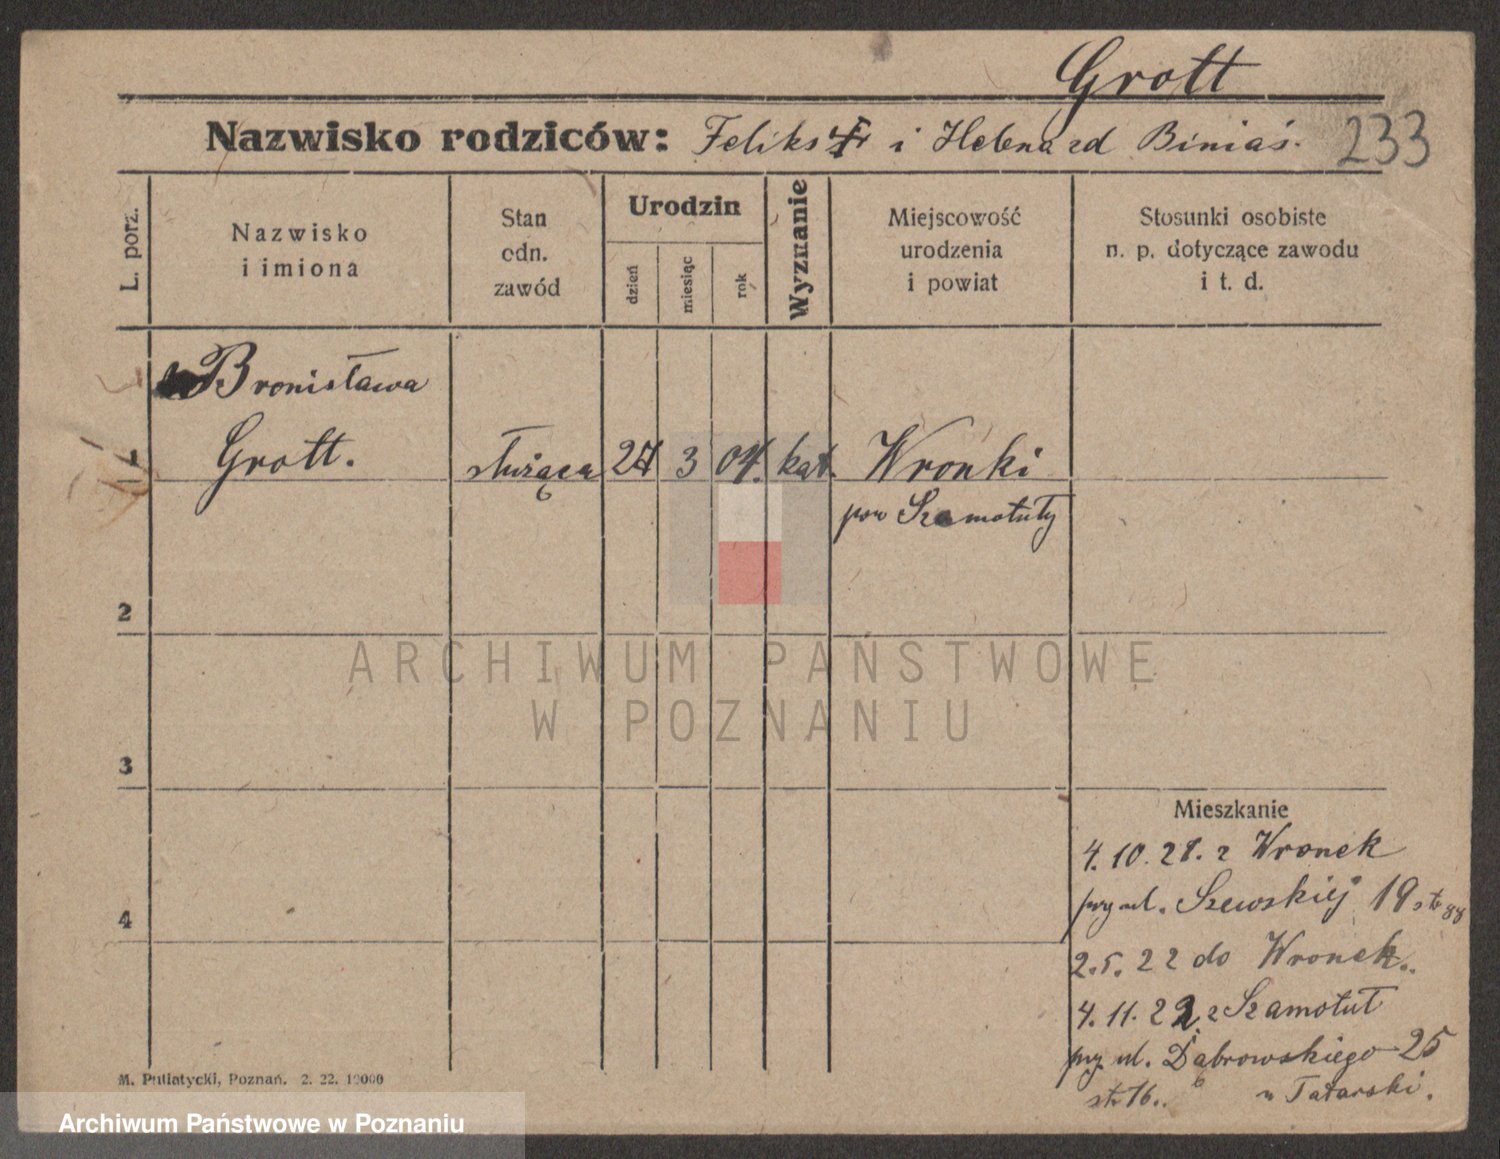 Grott
Nazwisko rodziców: Feliks i Helena zd Biniaś.
233
L. porz.
Nazwisko
i imiona
Stan
odn.
zawód
Urodzin
dzień
miesiąc
rok
Wyznanie
Miejscowość
urodzenia
i powiat
Stosunki osobiste
n. p. dotyczące zawodu
i t. d.
Bronisława
1 Grott. służąca 27 3 04. kat. Wronki
pow Szamotuły
2
3
4
Mieszkanie
4.10.21. z Wronek
przy ul. Szewskiej 19 str 88
2.5.22 do Wronek..
4.11.22. z Szamotuł
przy ul. Dąbrowskiego 25
str 16.. u Tatarski.
M. Putiatycki, Poznań. 2. 22. 10000
ARCHIWUM PAŃSTWOWE
W POZNANIU
Archiwum Państwowe w Poznaniu